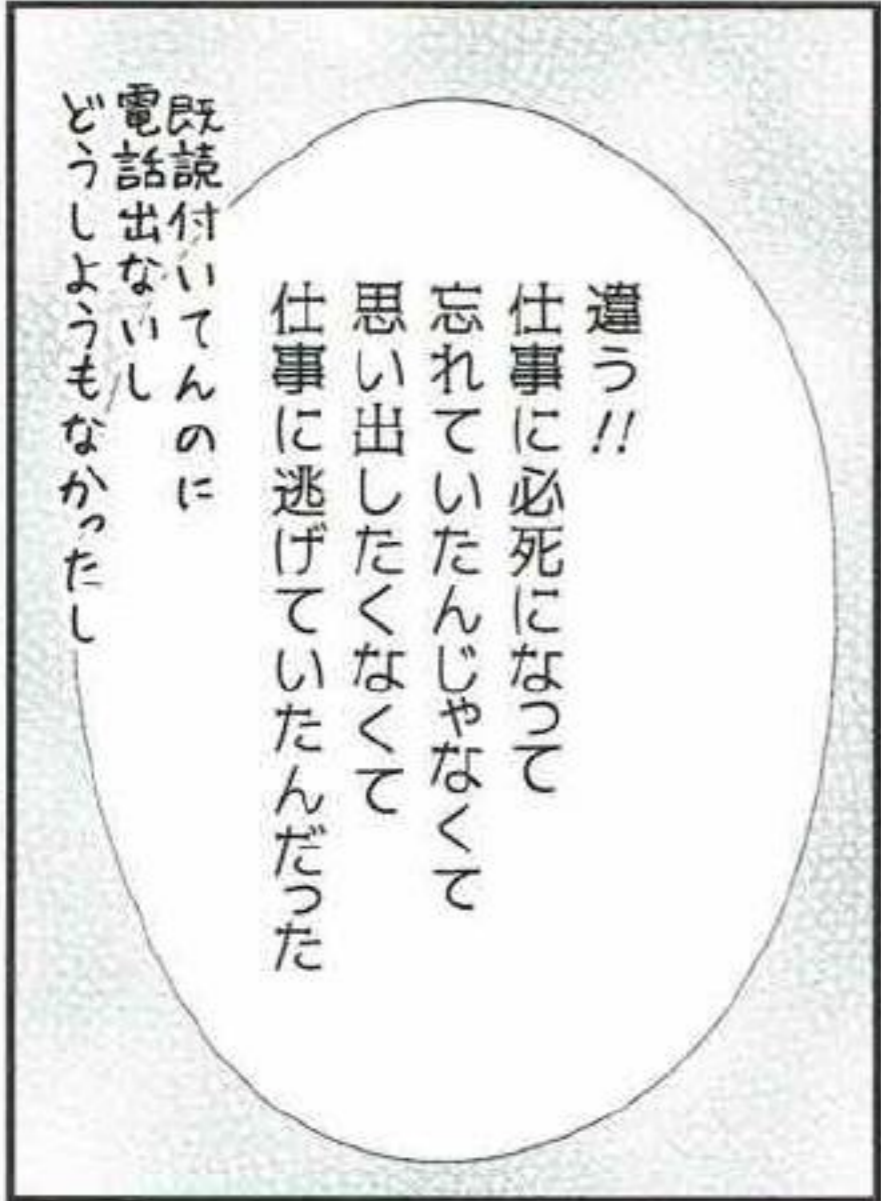 違う!!
仕事に必死になって
忘れていたんじゃなくて
思い出したくなくて
仕事に逃げていたんだった
既読付いてんのに
電話出ないし
どうしようもなかったし